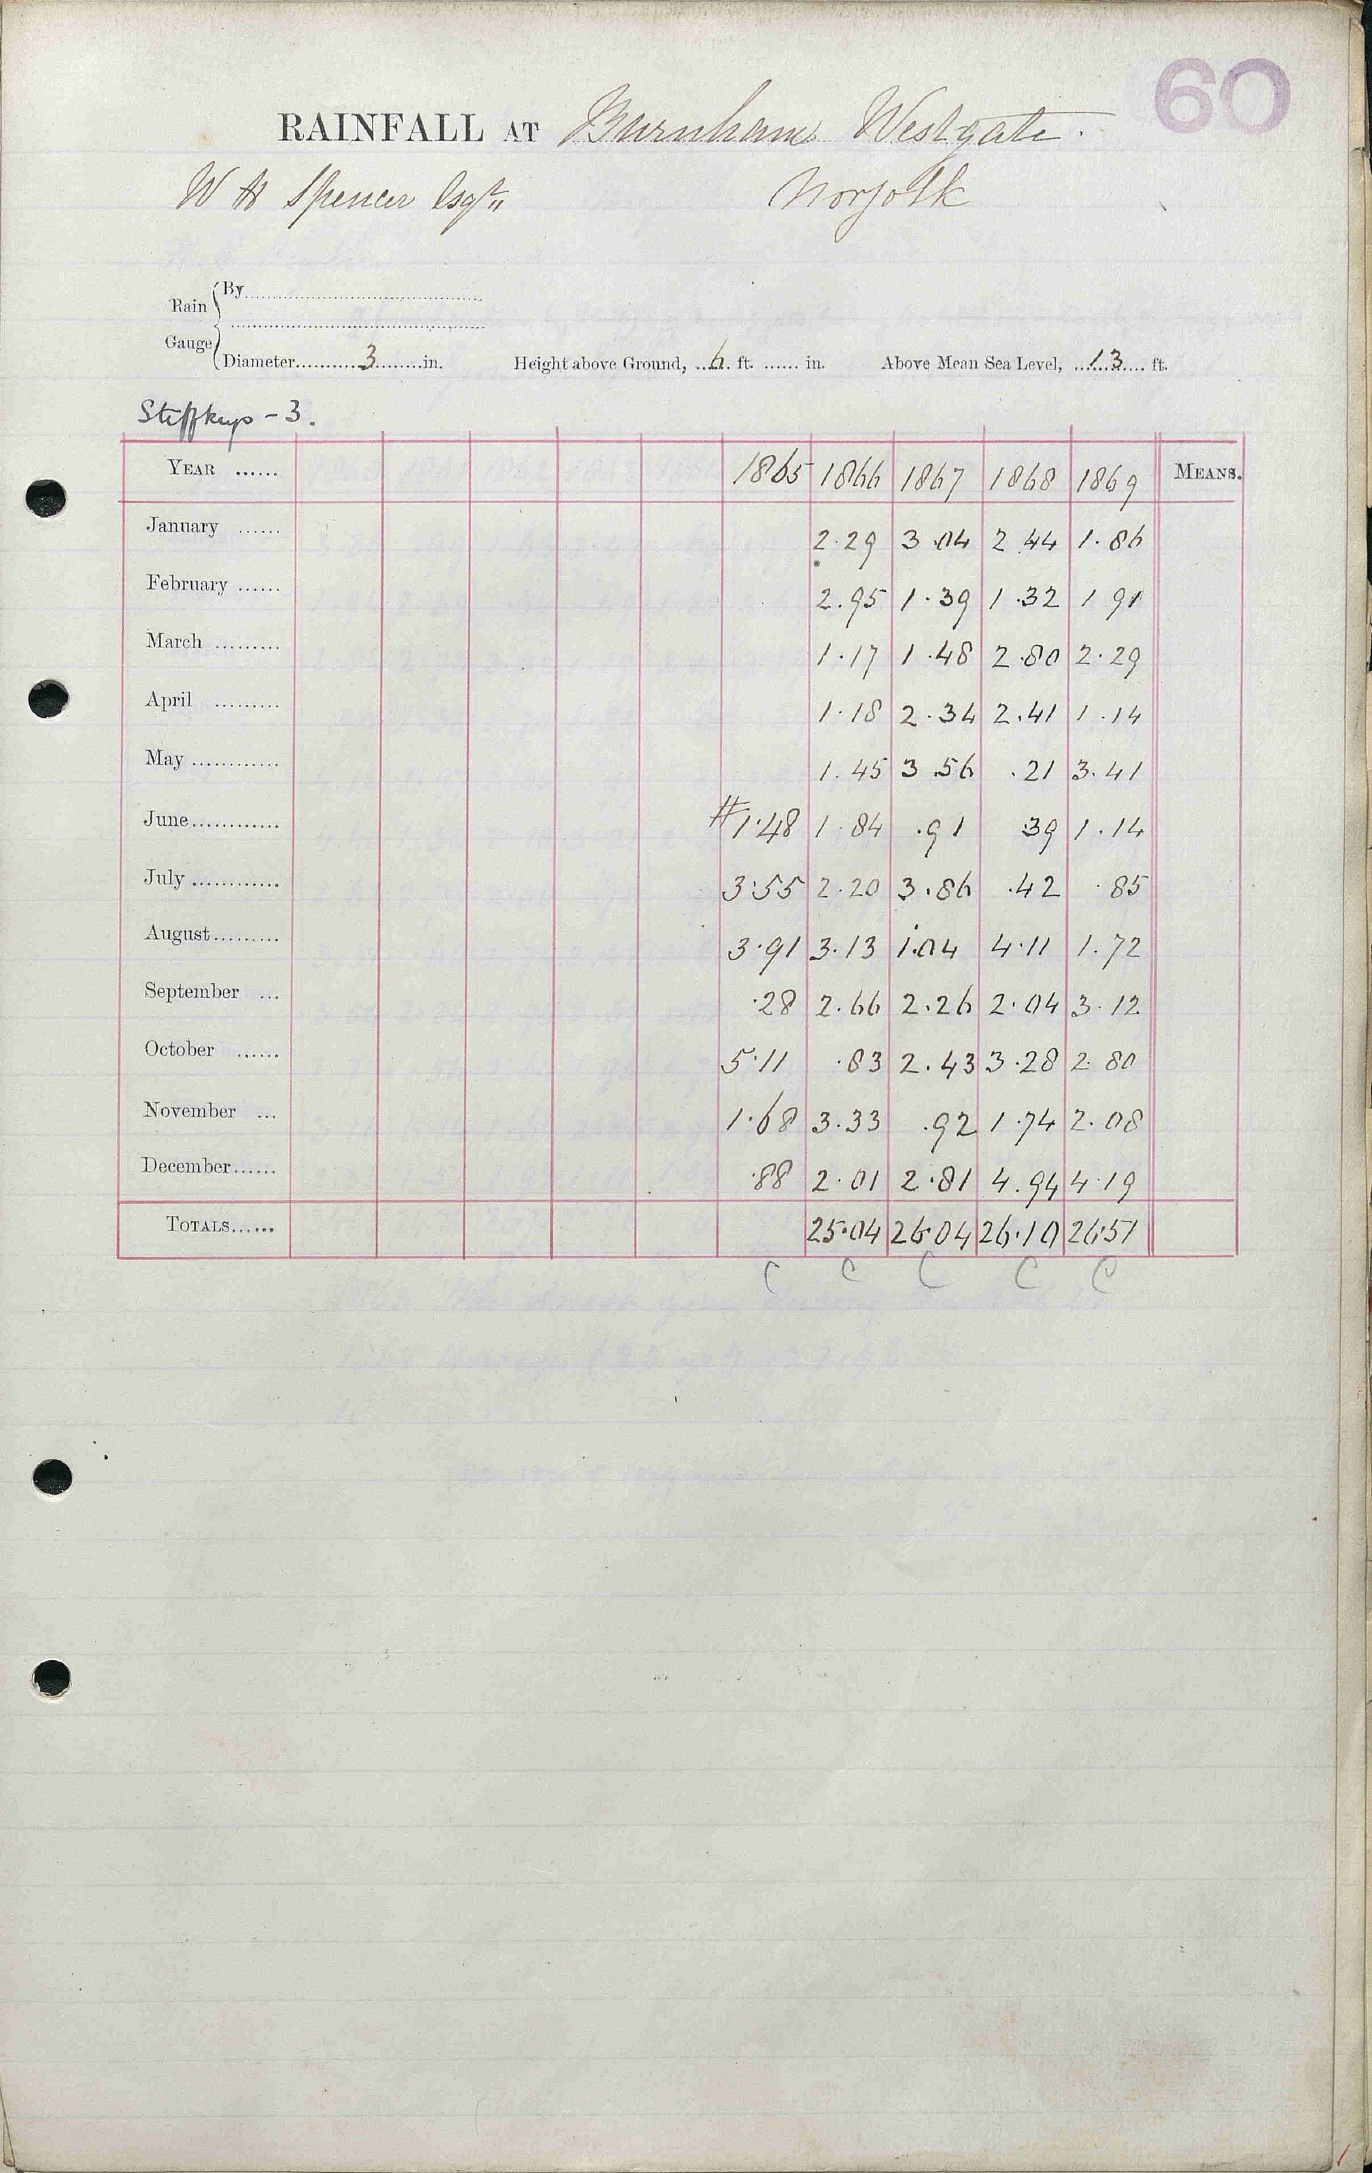 60
RAINFALL AT Burnham Westgate.
W H Spencer Esqr. Norfolk
Rain Gauge { By..........
Diameter..........3........in. Height above Ground, ..6.. ft. ...... in. Above Mean Sea Level, ...13.... ft.
Stiffkey - 3.
YEAR ...... 1865 1866 1867 1868 1869 MEANS.
January ...... 2.29 3.04 2.44 1.86
February ...... 2.95 1.39 1.32 1 91
March ......... 1.17 1.48 2.80 2.29
April ......... 1.18 2.34 2.41 1.14
May ............ 1.45 3 56 .21 3.41
June............ #1.48 1.84 .91 39 1.14
July ............ 3.55 2.20 3.86 .42 .85
August......... 3.91 3.13 1.04 4.11 1.72
September ... .28 2.66 2.26 2.04 3.12
October ...... 5.11 .83 2.43 3.28 2.80
November ... 1.68 3.33 .92 1.74 2.08
December...... .88 2.01 2.81 4.94 4.19
TOTALS...... 25.04 26.04 26.10 26.51
C C C C C